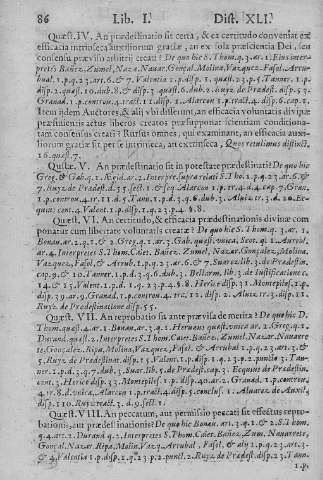 86 Lib. I. Dist. XLI.
Quæst. IV. An prædestinatio sit certa, & ex certitudo conveniat ex
efficacia intrinseca auxiliorum gratiæ, an ex sola præscientia Dei, seu
consensu prævisio arbitrii creati? De quo hic S. Thom. q. 3. ar. 1. Ejus inter-
pretes Bañez. Zumel, Naza. Navar. Gonçal. Molina, Vazquez, Fasol. Arru-
bal. 1. p. q. 23. ar. 6. & 7. Valentia 1. p. disp. 1. quæst. 23. p. 5. Tanner. 1. p.
disp. 2. quæst. 10. dub. 8. & disp. 3. quæst. 6. dub. 2. Ruiz de Prædest. disp. 53.
Granad. 1. p. controv. 4. tract. 11. disp. 1. Alarcon 1. p. tract. 4. disp. 6. cap. 2.
Item iidem Auctores, & alij ubi disserunt, an efficacia voluntatis divinæ
præfinientis actus liberos creatos præsupponat scientiam conditiona-
tam consensus creati? Rursus omnes, qui examinant, an efficacia auxi-
liorum gratiæ sit per se intrinseca, an extrinseca, Quos retulimus distinct.
26. quæst. 7.
Quæst. V. An prædestinatio sit in potestate prædestinati? De quo hic
Greg. & Gab. q. 1. Ægid. ar. 2. Interpretes supra relati S. Tho. 1. p. q. 23. ar. 6. &
7. Ruiz de Prædest. d. 55. sect. 1. & seq. Alarcon 1. p. tr. 4. d. 4. cap. 7. Gran.
1. p. controv. 4. tr. 11. d. 5. Tann. 1. p. d. 3. q. 6. dub. 3. Aluiz tr. 3. d. 10. Ec-
quin: cent. 4. Valent. 1. p. disp. 1. q. 23. p. 4. §. 8.
Quæst. VI. An certitudo, & efficacia prædestinationis divinæ com-
ponatur cum libertate voluntatis creatæ? De quo hic S. Thom. q. 3. ar. 1.
Bonau. ar. 2. q. 1. & 2. Greg. q. 1. ar. 3. Gab. quæst. unica. Scot. q. 1. Aureol.
ar. 4. Interpretes S. Thom. Caiet. Bañez, Zumel, Nazar. Gonçalez, Molina,
Vazquez, Fasol, & Arrub. 1. p. q. 23. ar. 6. & 7. Suarez lib. 3. de Prædestin.
cap. 9. & 10. Tanner. 1. p. d. 3. q. 6. dub. 3. Bellarm. lib. 3. de Justificatione c.
14. & 15. Valent. 1. p. d. 1. q. 23. p. 4. §. 8. Herice disp. 31. Montepilos. 1. p.
disp. 39. ar. 9. Granad. 1. p. controv. 4. trac. 11. disp. 2. Aluiz trac. 3. disp. 11.
Ruiz. de Prædestinatione disp. 55.
Quæst. VII. An reprobatio sit ante prævisa demerita? De quo hic D.
Thom. quæst. 4. ar. 1. Bonau. ar. 3. q. 1. Hervæus quæst. unica ar. 2. Greg. q. 1.
Durand. quæst. 2. Interpretes S. Thom. Caiet. Bañez, Zumel, Nazar. Navarre-
te, Gonzalez, Ripa, Molina, Vazquez, Fasol. & Arrubal 1. p. q. 23. ar. 3. &
5. Ruiz de Prædestinat. disp. 15. Valent. 1. p. disp. 1. q. 23. p. 2. punct. 3. Tan-
ner. 1. p. d. 3. q. 7. dub. 3. Suar. lib. 5. de Prædest. cap. 3. Ecquin: de Prædestin.
cent. 2. Herice disp. 33. Montepilos. 1. p. disp. 40. ar. 2. Granad. 1. p. controv.
4. tr. 8. d. unica, Alarcon 1. p. tract. 4. disp. 5. conclus. 1. Aluarez de Auxil.
disp. 110. Ruiz tract. 3. d. 9. sect. 1.
Quæst. VIII. An peccatum, aut permissio peccati sit effectus repro-
bationis, aut prædestinationis? De quo hic Bonau. ar. 3. q. 1. & 2. S. Thom.
q. 4. ar. 2. Durand q. 2. Interpretes S. Thom Caiet. Bañez, Zum. Navarrete,
Gonçal. Nazar. Ripa, Molin. Vaz. Arrubal, Fasol, & alij 1. p. q. 23. ar. 3.
& 4. Valentia 1. p. disp. 1. q. 23. p. 2. punct. 2. Ruiz de Prædest. disp. 23. Tan.
1. p.